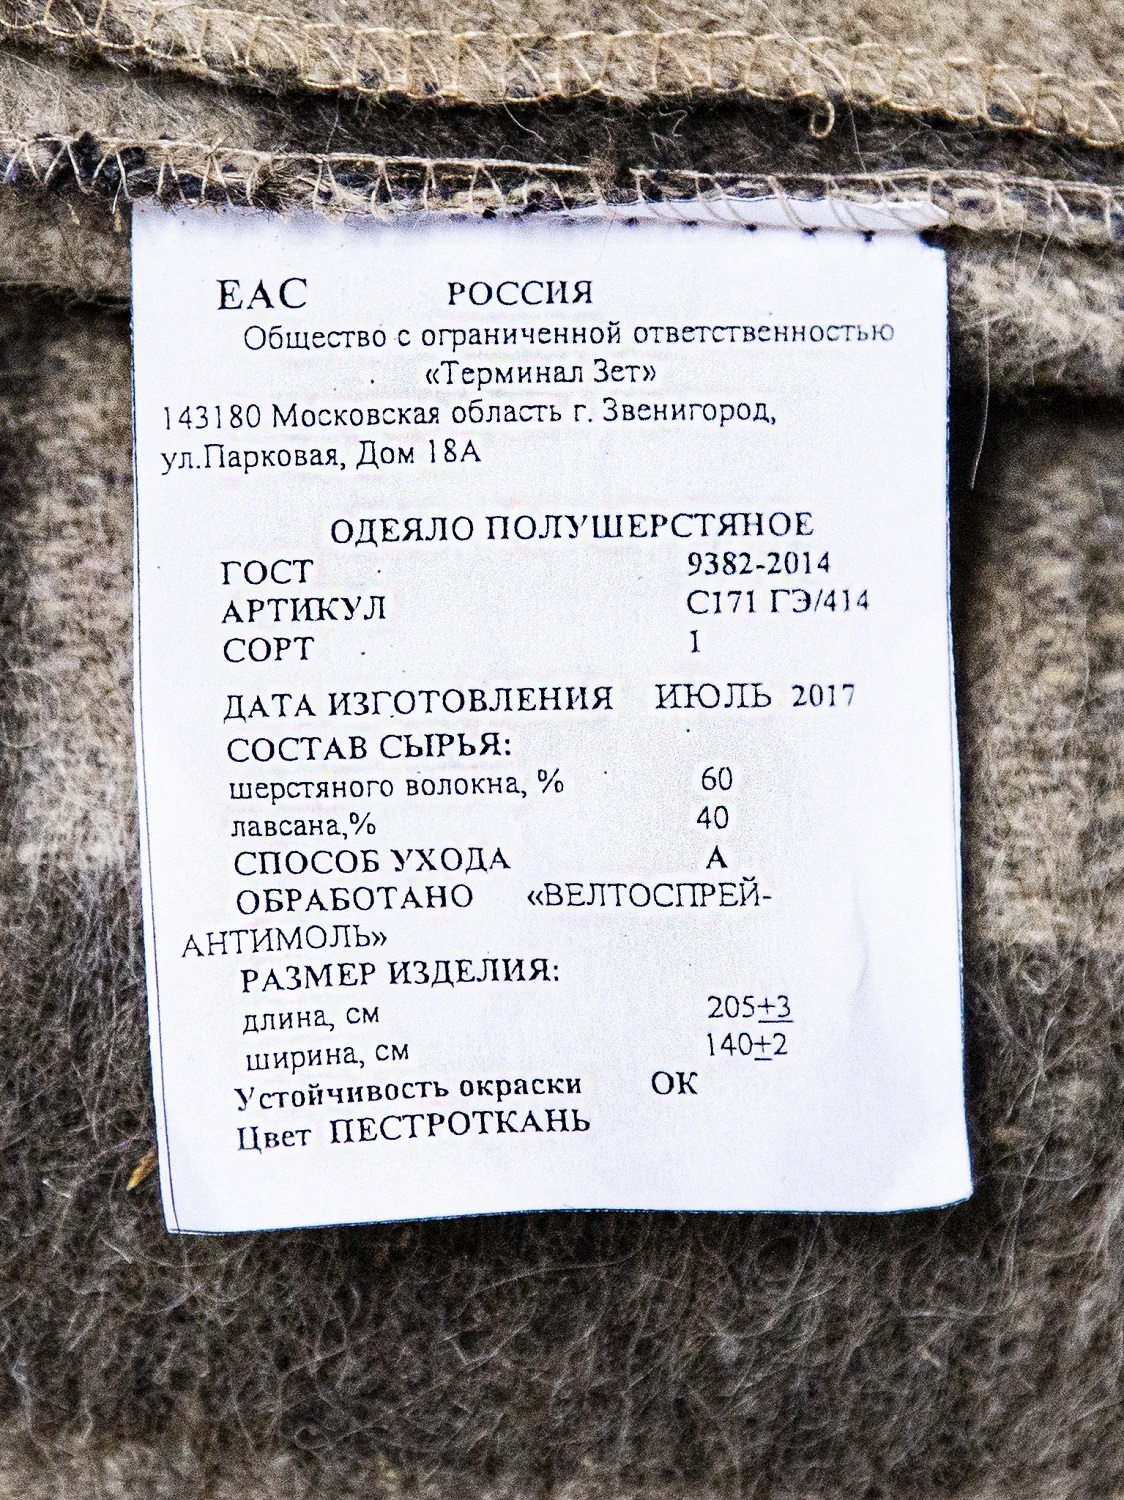 ЕАС РОССИЯ
Общество с ограниченной ответственностью
«Терминал Зет»
143180 Московская область г. Звенигород,
ул.Парковая, Дом 18А
ОДЕЯЛО ПОЛУШЕРСТЯНОЕ
ГОСТ 9382-2014
АРТИКУЛ С171 ГЭ/414
СОРТ 1
ДАТА ИЗГОТОВЛЕНИЯ ИЮЛЬ 2017
СОСТАВ СЫРЬЯ:
шерстяного волокна, % 60
лавсана,% 40
СПОСОБ УХОДА А
ОБРАБОТАНО «ВЕЛТОСПРЕЙ-
АНТИМОЛЬ»
РАЗМЕР ИЗДЕЛИЯ:
длина, см 205±3
ширина, см 140±2
Устойчивость окраски ОК
Цвет ПЕСТРОТКАНЬ